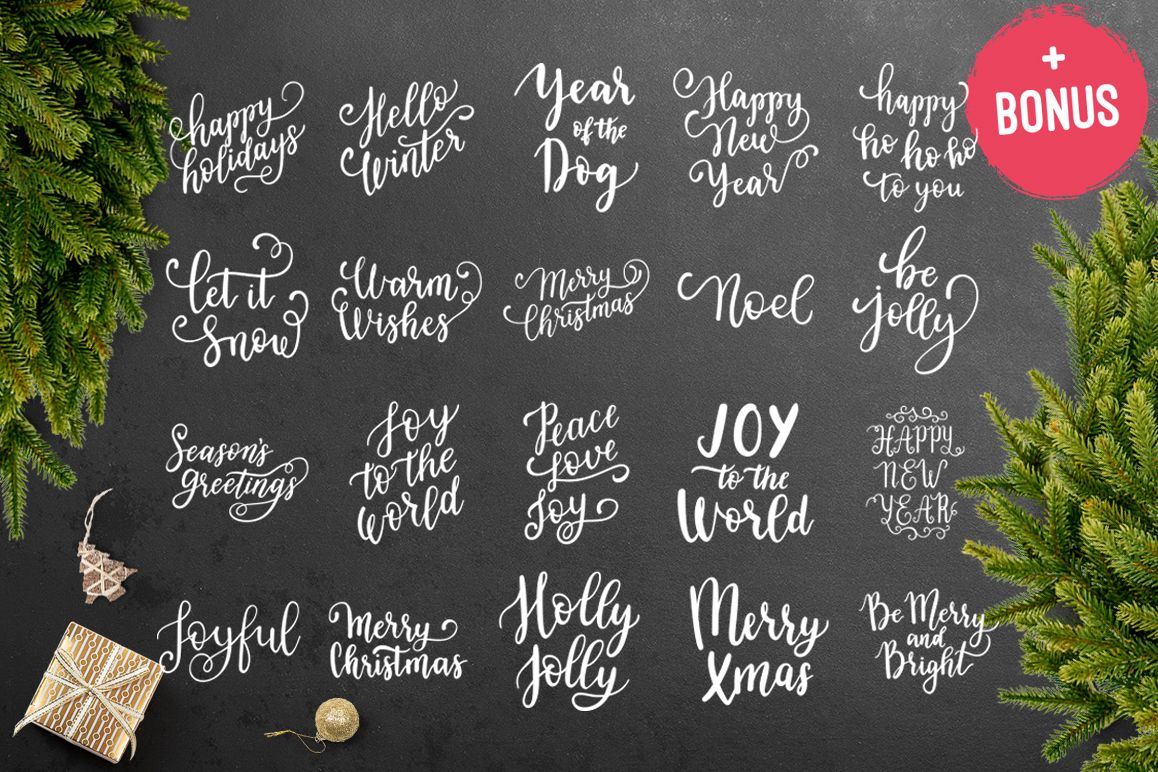 happy
holidays
Hello
Winter
Year
of the
Dog
Happy
New
Year
happy
ho ho ho
to you
+
BONUS
let it
snow
Warm
Wishes
Merry
Christmas
Noel
be
jolly
Season's
greetings
Joy
to the
world
Peace
Love
Joy
JOY
to the
World
HAPPY
NEW
YEAR
Joyful
Merry
Christmas
Holly
Jolly
Merry
Xmas
Be Merry
and
Bright